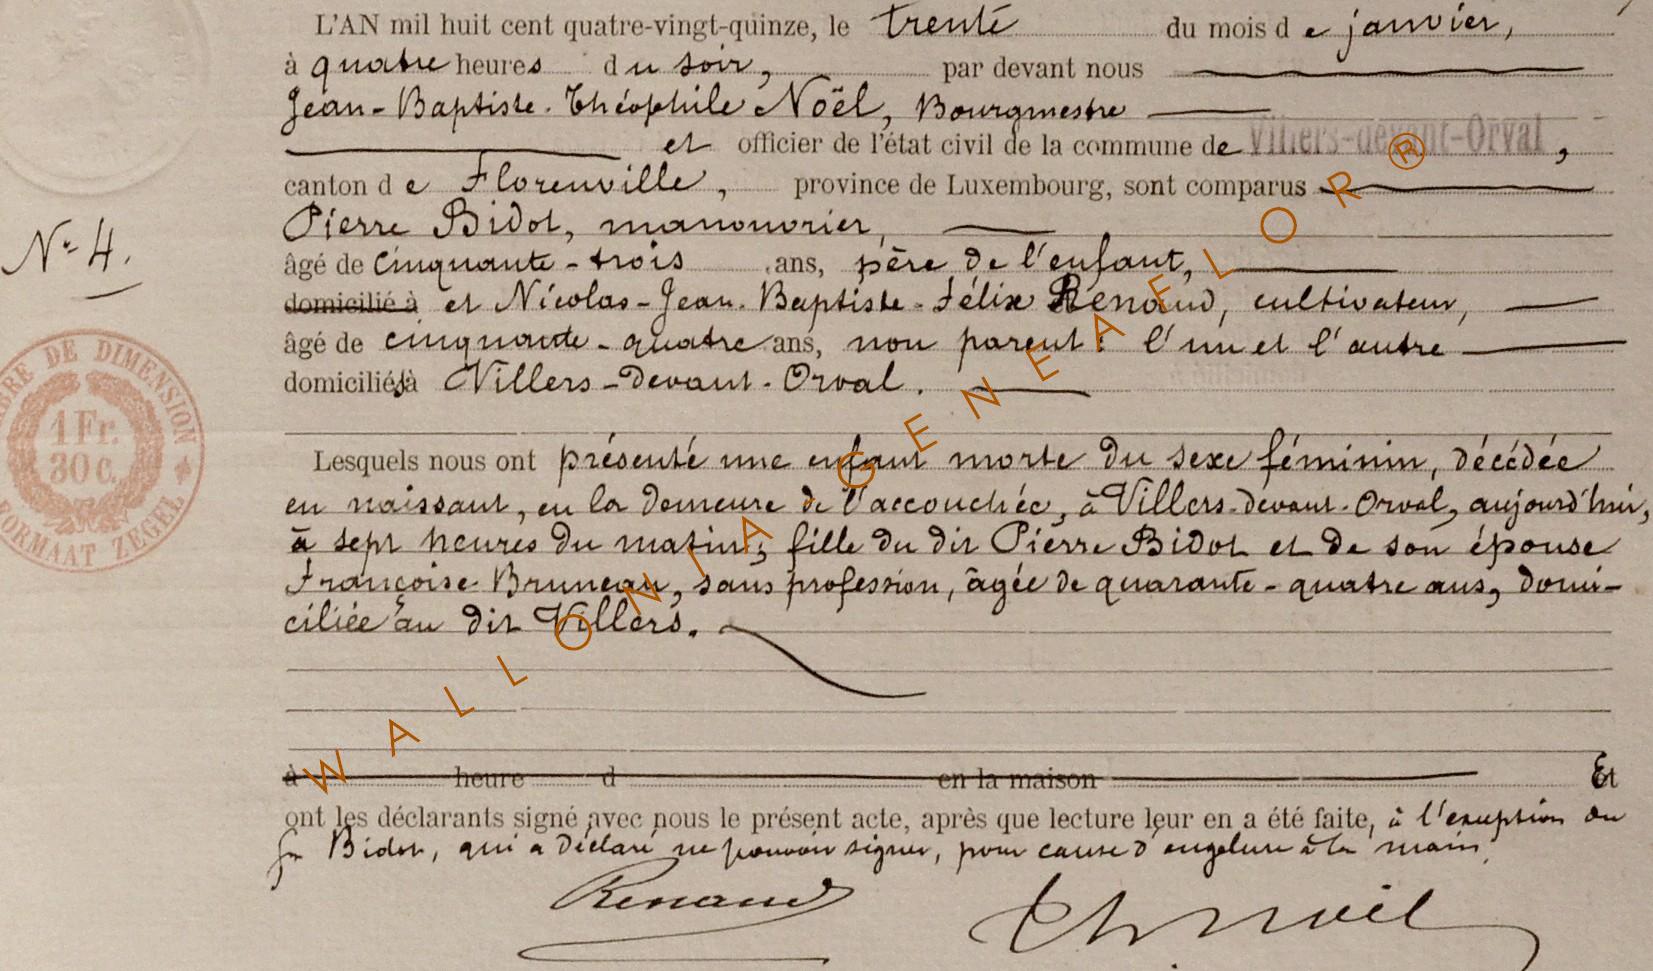 L'AN mil huit cent quatre-vingt-quinze, le trente du mois de janvier,
à quatre heures du soir, par devant nous
Jean-Baptiste-Théophile Noël, Bourgmestre
et officier de l'état civil de la commune de Villers-devant-Orval,
canton de Florenville, province de Luxembourg, sont comparus
Pierre Bidot, manouvrier,
N° 4.
âgé de cinquante-trois ans, père de l'enfant,
domicilié à et Nicolas-Jean-Baptiste-Félix Renaud, cultivateur,
âgé de cinquante-quatre ans, non parent: l'un et l'autre
domiciliés à Villers-Devant-Orval.
TIMBRE DE DIMENSION
1 Fr.
30 c.
FORMAAT ZEGEL
Lesquels nous ont présenté une enfant morte du sexe féminin, décédée
en naissant, en la demeure de l'accouchée, à Villers-devant-Orval, aujourd'hui,
à sept heures du matin; fille du dit Pierre Bidot et de son épouse
Françoise Bruneau, sans profession, âgée de quarante-quatre ans, domi-
ciliée au dit Villers.
à heure d en la maison Et
ont les déclarants signé avec nous le présent acte, après que lecture leur en a été faite, à l'exception du
sr Bidot, qui a déclaré ne pouvoir signer, pour cause d'engelure à la main.
Renaud Th Noël
WALLONIA GENEALOR ®